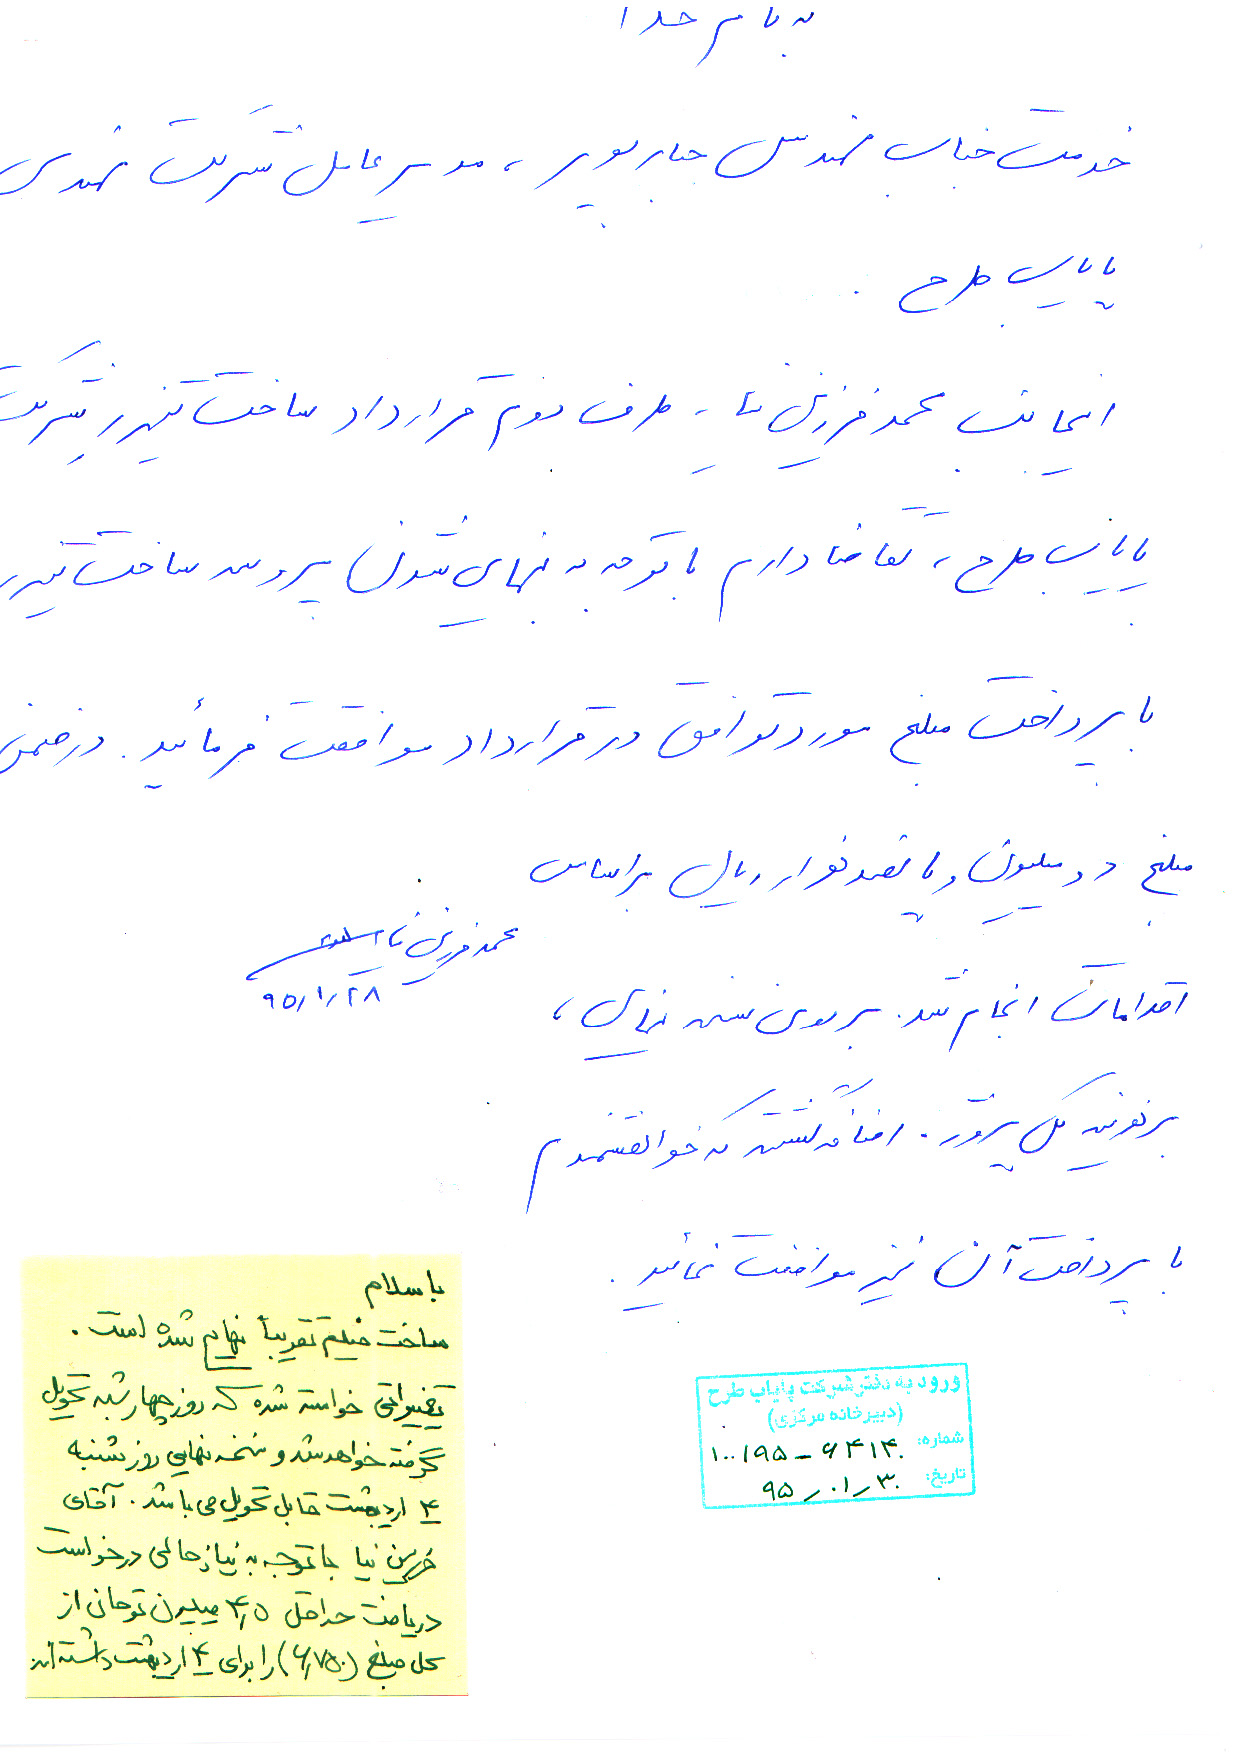 به نام خدا
خدمت جناب مهندس جبارپور، مدیر عامل شرکت مهندسی
پایاب طرح.
اینجانب محمد فرزین نیا، طرف دوم قرارداد ساخت تیزر شرکت
پایاب طرح، تقاضا دارم با توجه به نهایی شدن پروسه ساخت تیزر
با پرداخت مبلغ مورد توافق در قرارداد موافقت فرمائید. در ضمن
مبلغ دو میلیون و پانصد هزار ریال براساس
اقدامات انجام شده بر روی نسخه نهایی،
بر هزینه کل پروژه اضافه گشته که خواهشمندم
با پرداخت آن نیز موافقت نمائید.
محمد فرزین نیا
۹۵/۱/۲۸
با سلام
ساخت فیلم تقریباً نهایی شده است.
تغییراتی خواسته شده که روز چهارشنبه تحویل
گرفته خواهد شد و نسخه نهایی روز شنبه
۴ اردیبهشت قابل تحویل می باشد. آقای
فرزین نیا با توجه به نیاز مالی درخواست
دریافت حداقل ۴٫۵ میلیون تومان از
کل مبلغ (۶٫۷۵۰) را برای ۴ اردیبهشت داشته‌اند
ورود به دفتر شرکت پایاب طرح
(دبیرخانه مرکزی)
شماره: ۱۰۰/۹۵ – ۶۴۱۴۰
تاریخ: ۹۵/۰۱/۳۰